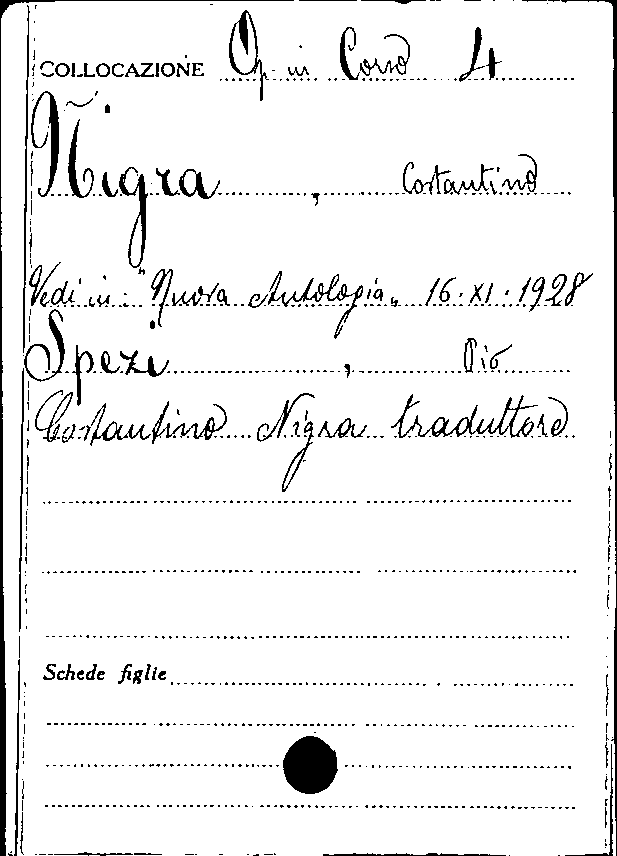 COLLOCAZIONE Op. in Corso 4
Nigra, Costantino
Vedi in: "Nuova Antologia„ 16. XI. 1928
Spezi, Pio
Costantino Nigra traduttore
Schede figlie